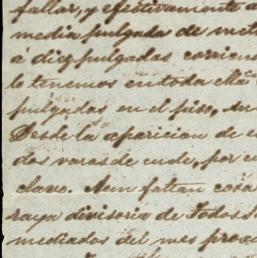 fallar, y efectivamente a
media pulgada de met
á diez pulgadas corrien
lo tenemos en toda cha
pulgadas en el piso, su
Desde la aparicion de e
dos varas de cude, por c
clavo. Aun faltan cosa
raya divisoria de Todos S
mediados del mes proxi